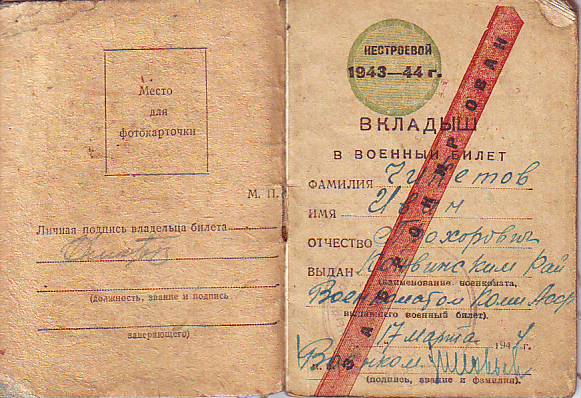 Место
для
фотокарточки
М. П.
Личная подпись владельца билета
(должность, звание и подпись
заверяющего)
НЕСТРОЕВОЙ
1943—44 г.
ВКЛАДЫШ
В ВОЕННЫЙ БИЛЕТ
ФАМИЛИЯ
ИМЯ Иван
ОТЧЕСТВО Прохорович
ВЫДАН Кудвинским Рай
(наименование военкомата,
Военкоматом Коми АССР
выдавшего военный билет).
17 марта 1944 г.
Военком
(подпись, звание и фамилия).
ЗАБРОНИРОВАН